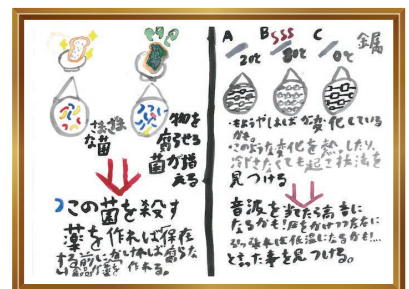 様々な菌
物を腐らせる菌が増える
この菌を殺す
薬を作れば保存
する前にかければ腐らな
い食品が作れる。
A B C 金属
20℃ 80℃ 0℃
・もようやしはばが変化している
かも。
・このような変化を熱したり、
冷さなくても起こす技法を
見つける
音波を当てたら高音に
なるかも!圧をかけつつ左右に
引っ張れば低温になるかも!…
といった事を見つける。